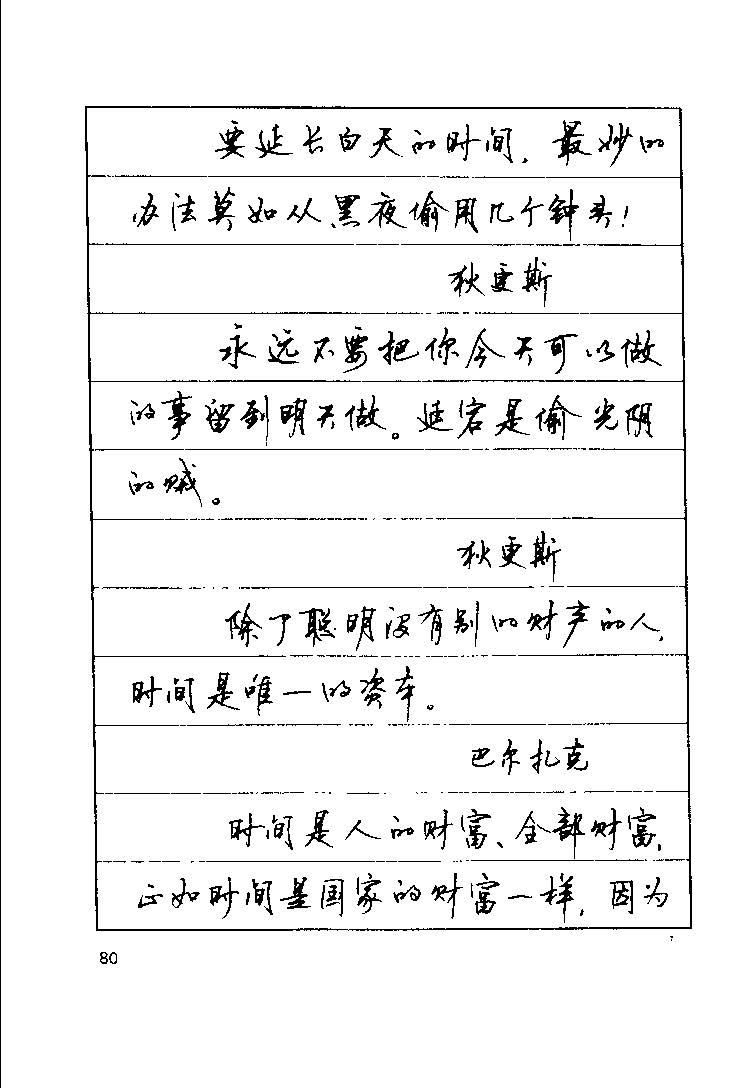 要延长白天的时间，最妙的
办法莫如从黑夜偷用几个钟头！
狄更斯
永远不要把你今天可以做
的事留到明天做。延宕是偷光阴
的贼。
狄更斯
除了聪明没有别的财产的人，
时间是唯一的资本。
巴尔扎克
时间是人的财富、全部财富，
正如时间是国家的财富一样，因为
80